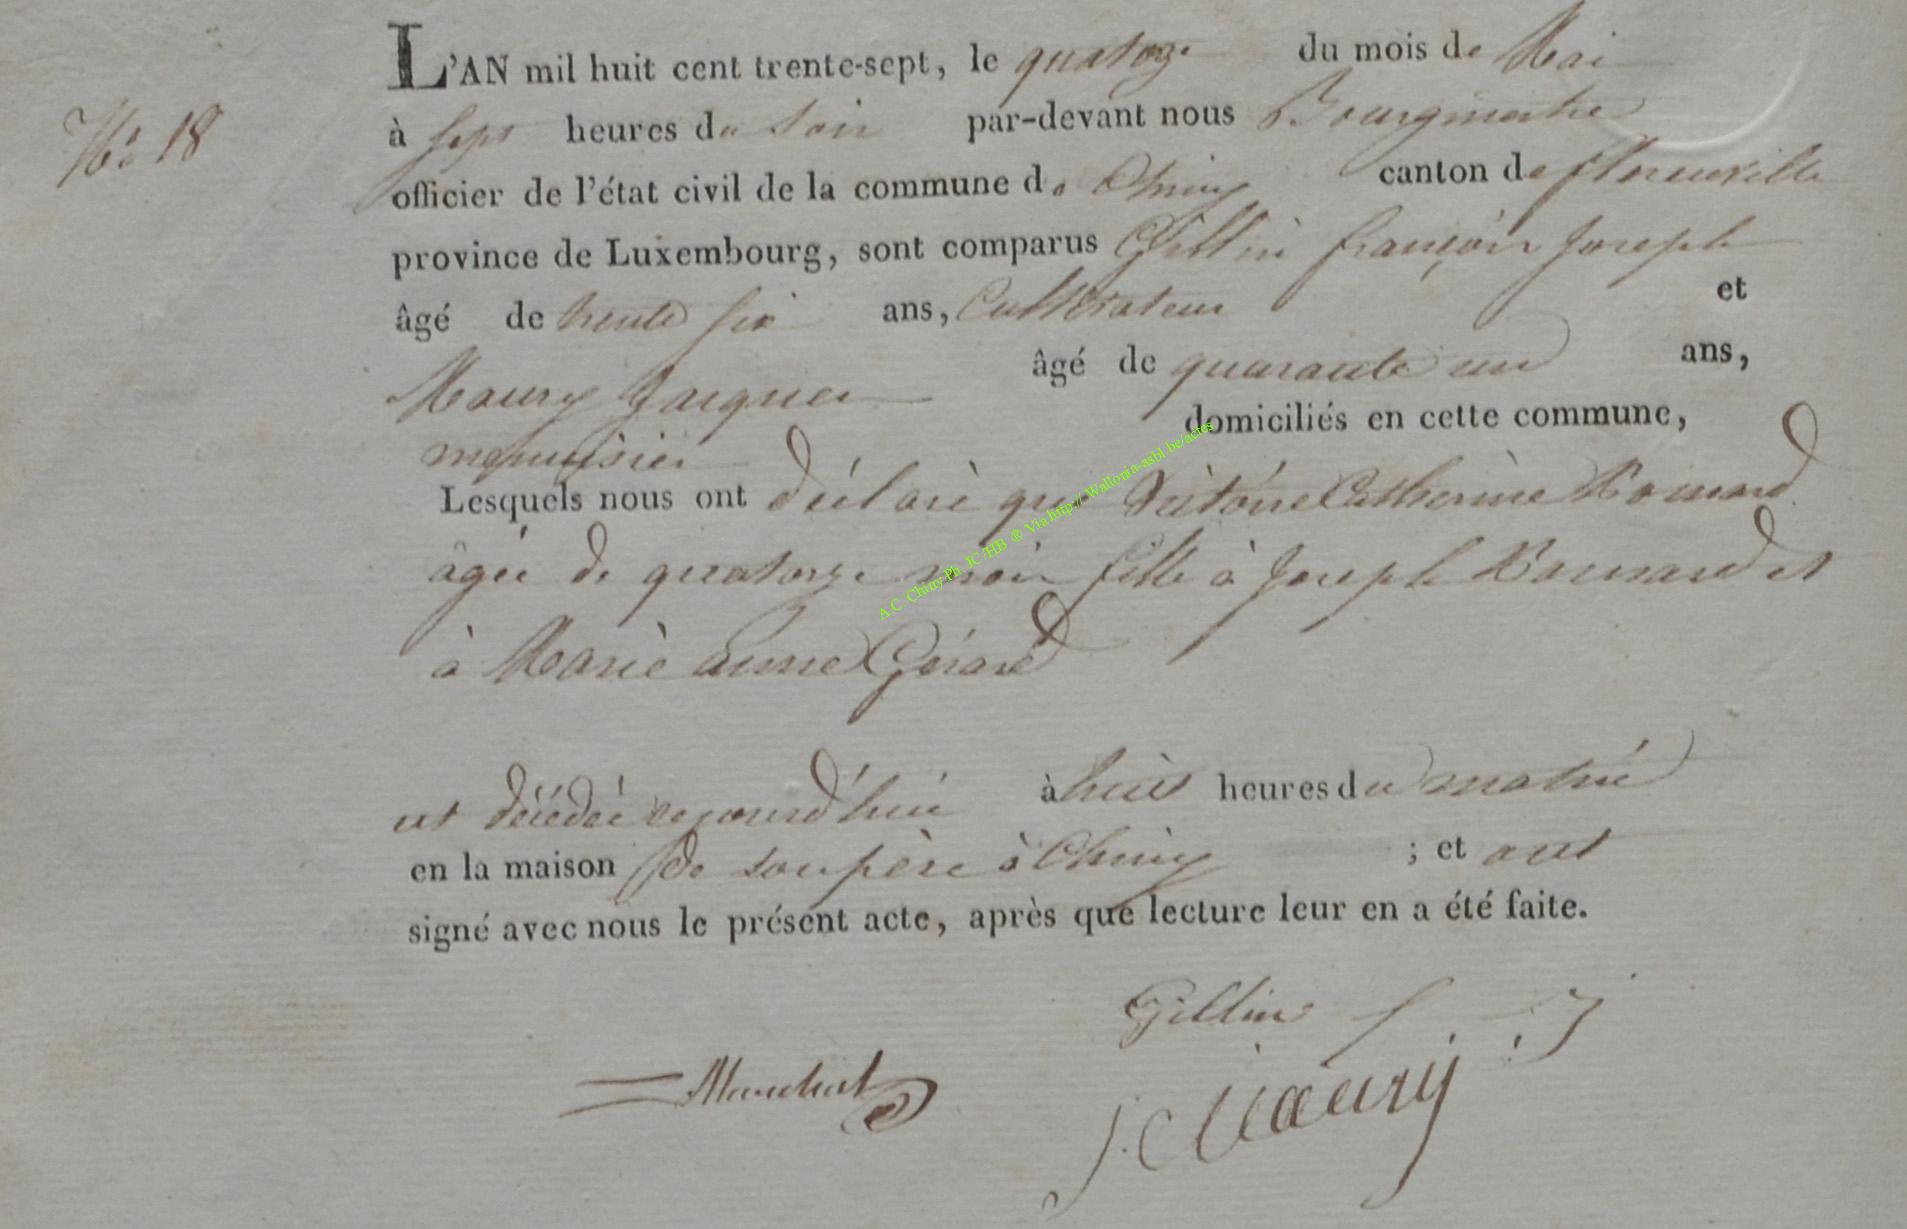 L'AN mil huit cent trente-sept, le quatorze du mois de Mai
No 18
à sept heures du soir par-devant nous Bourgmestre
officier de l'état civil de la commune de Chiny canton de florenville
province de Luxembourg, sont comparus Gillin françois Joseph
âgé de trente six ans, Cultivateur et
Maury Jacques âgé de quarante un ans,
menuisier domiciliés en cette commune,
Lesquels nous ont déclaré que Victoire Catherine Ronvard
âgée de quatorze mois fille à Joseph Ronvard et
à Marie anne Gérard
est décédée cejourd'hui à huit heures du matin
en la maison de son père à Chiny ; et ont
signé avec nous le présent acte, après que lecture leur en a été faite.
Gillin f J
J. Maury
A.C. Chiny Ph JC/HB ® Via http:// Wallonia-asbl.be/actes